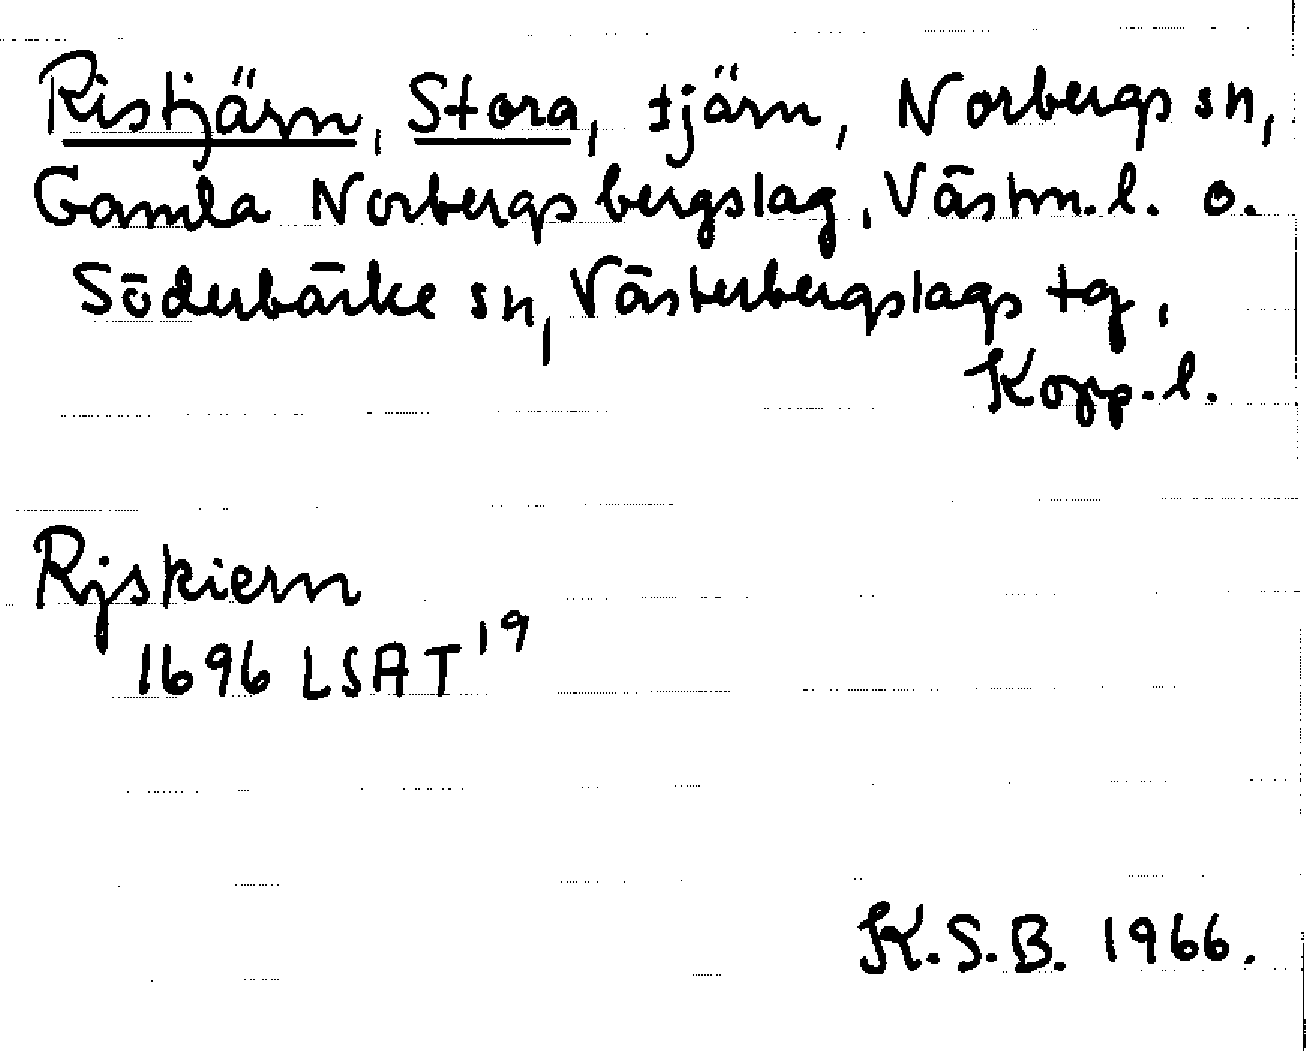 Ristjärn, Stora, tjärn, Norbergs sn,
Gamla Norbergs bergslag, Västm. l. o.
Söderbärke sn, Västerbergslags tg,
Kopp. l.
Rjskiern
1696 LSAT 19
K.S.B. 1966.